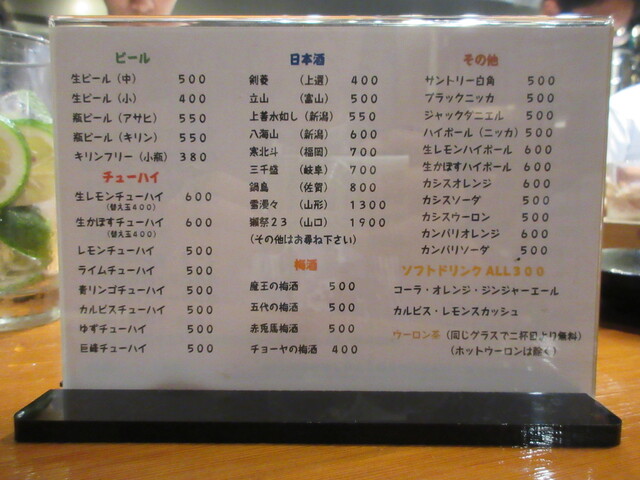 ビール
生ビール（中） 500
生ビール（小） 400
瓶ビール（アサヒ） 550
瓶ビール（キリン） 550
キリンフリー（小瓶） 380
チューハイ
生レモンチューハイ 600
（替え玉400）
生かぼすチューハイ 600
（替え玉400）
レモンチューハイ 500
ライムチューハイ 500
青リンゴチューハイ 500
カルピスチューハイ 500
ゆずチューハイ 500
巨峰チューハイ 500
日本酒
剣菱 （上選） 400
立山 （富山） 500
上善水如し（新潟） 550
八海山 （新潟） 600
寒北斗 （福岡） 700
三千盛 （岐阜） 700
鍋島 （佐賀） 800
雪漫々 （山形） 1300
獺祭23 （山口） 1900
（その他はお尋ね下さい）
梅酒
魔王の梅酒 500
五代の梅酒 500
赤兎馬梅酒 500
チョーヤの梅酒 400
その他
サントリー白角 500
ブラックニッカ 500
ジャックダニエル 500
ハイボール（ニッカ）500
生レモンハイボール 600
生かぼすハイボール 600
カシスオレンジ 600
カシスソーダ 500
カシスウーロン 500
カンパリオレンジ 600
カンパリソーダ 500
ソフトドリンクALL300
コーラ・オレンジ・ジンジャーエール
カルピス・レモンスカッシュ
ウーロン茶（同じグラスで二杯目より無料）
（ホットウーロンは除く）